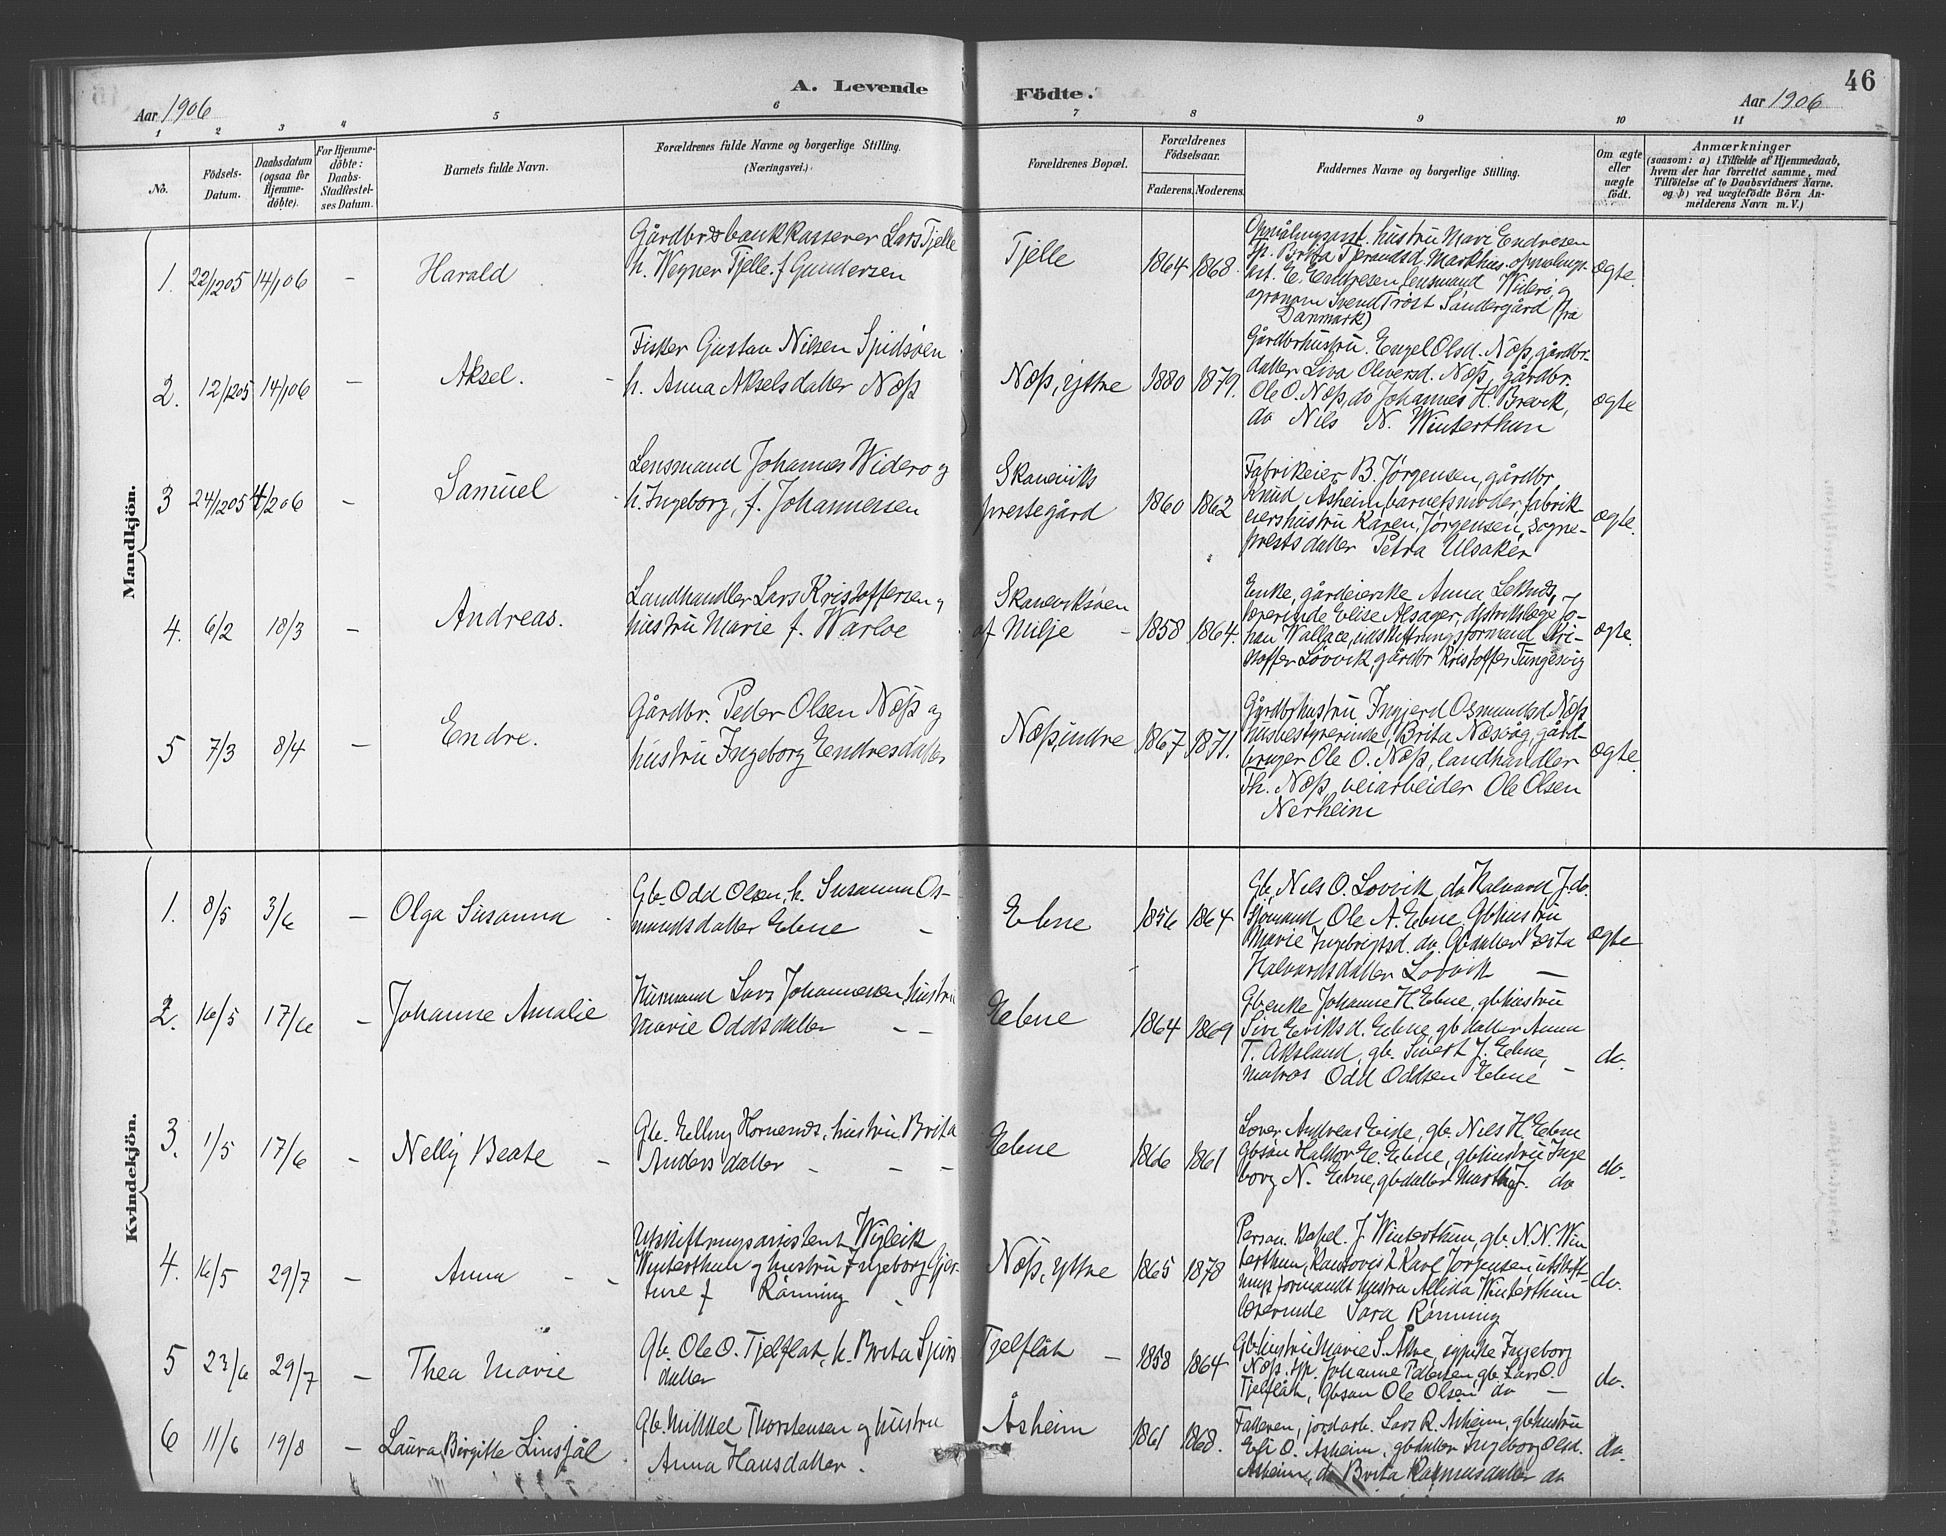 A. Levende
Födte.
46
Aar 1906
Aar 1906
1 2 3 4 5 6 7 8 9 10 11
No.
Födsels-
Datum.
Daabsdatum
(ogsaa for
Hjemme-
döbte).
For Hjemme-
döbte:
Daabs-
Stadfæstel-
ses Datum.
Barnets fulde Navn.
Forældrenes fulde Navne og borgerlige Stilling.
(Næringsvei.)
Forældrenes Bopæl.
Forældrenes
Födselsaar.
Faderens. Moderens.
Faddernes Navne og borgerlige Stilling.
Om ægte
eller
uægte
födt.
Anmærkninger
(saasom: a) i Tilfælde af Hjemmedaab,
hvem der har forrettet samme, med
Tilföielse af to Daabsvidners Navne.
og b) ved uægtefödte Börn An-
melderens Navn m. V.)
Mandkjön.
1. 22/12 05 14/1 06 – Harald
Gårdbr & bankkasserer Lars Tjelle
h. Wegner Tjelle f Gundersen
Tjelle 1864 1868.
hustru Mari Endresen
Markhus
E. Endresen, lensmand Widerö og
agronom Svend Tröst Söndergård (fra
Danmark)
ægte.
2. 12/12 05 14/1 06 – Aksel.
Fisker Gustav Nilsen Spidsöen
h. Anna Akselsdatter Næss
Næss, yttre 1880 1879.
Gårdbrhustru Engel Olsd. Næss, gårdbr-
datter Liva Oliversd. Næss, gårdbr.
Ole O. Næss, do Johannes H. Brevik,
do Nils N. Winterthun
ægte
3 24/12 05 4/2 06 – Samuel
Lensmand Johannes Widerö og
h. Ingeborg, f. Johannessen
Skaneviks
prestegård
1860 1862
Fabrikeier B. Jørgensen, gårdbr
Knud Asheim, barnets moder, fabrik-
eiershustru Karen Jørgensen, sogne-
prestsdatter Petra Ulsaker
ægte.
4. 6/2 18/3 – Andreas.
Landhandler Lars Kristoffersen og
hustru Marie f. Warloe
Skaneviksöen
af Milje – 1858 1864.
Enke, gårdeierske Anna
lærerinde Elise Alsager, distriktslæge Jo-
han Wallace, udskiftningsformand Kri-
stoffer Lövvik, gårdbr Kristoffer Tungesvig
ægte.
5 7/3 8/4 – Endre.
Gårdbr. Peder Olsen Næss og
hustru Ingeborg Endresdatter
Næss, indre 1867 1871.
Gårdbrhustru Ingjerd Osmundsd Næss
husbestyrerinde Brita Næsvåg, gård-
bruger Ole O. Næss, landhandler
Th. Næss, veiarbeider Ole Olsen
Nerheim
ægte.
Kvindekjön.
1. 8/5 3/6 – Olga Susanna
Gb. Odd Olsen, h. Susanna Os-
mundsdatter Ebne –
Ebne 1856 1864
Gb. Nils O. Lövvik do Halvard J. do.
Sjømand Ole A. Ebne Gbhustru
Marie Ingebrigtsd. do. Gbdatter Brita
Halvardsdatter Lövvik –
ægte
2. 16/5 17/6 – Johanne Amalie
Husmand Lars Johannesen, hustru
Marie Oddsdatter – –
Ebne 1864 1869
Gbenke Johanne H. Ebne, gbhustru
Siri Eriksd. Ebne, gbdatter Anna
T. Aksland, gb. Sivert J. Ebne,
Matros Odd Oddsen Ebne –
do.
3. 1/5 17/6 – Nelly Beate –
Gb. Elling Hornends, hustru Brita
Andersdatter – – –
Ebne 1866 1861
Lærer Andreas Eide, gb. Nils H. Ebne
Gbsön Halvor E. Ebne, gbhustru Inge
borg N. Ebne, gbdatter Martha J. do
do.
4. 16/5 29/7 – Anna – –
Utskiftningsassistent Wigleik
Winterthun og hustru Ingeborg Gjer-
tine f Rönning
Næss, yttre 1865 1878
J. Winterthun, gb. N.N. Win
terthun, Karl Jørgensen, utskift-
nings formands hustru Allida Winterthun
lærerinde Sara Rønning
do.
5 23/6 29/7 – Thea Marie
Gb. Ole O. Tjelflat, h. Brita Sjurs
datter
Tjelflåt – 1858 1864
Gbhustru Marie S. Åkre, sypike Ingeborg
Næss, Johanne Pedersen, gb. Lars O.
Tjelflåt, gbsøn Ole Olsen do –
do.
6 11/6 19/8 – Laura Birgitte Linsjål
Gb. Mikkel Thorstensen og hustru
Anna Hansdatter.
Åsheim 1861 1868.
Faderen, jordarb. Lars R. Asheim, gbhustru
Eli O. Asheim, gbdatter Ingeborg Olsd.
Asheim, do Brita Rasmusdatter do
do.